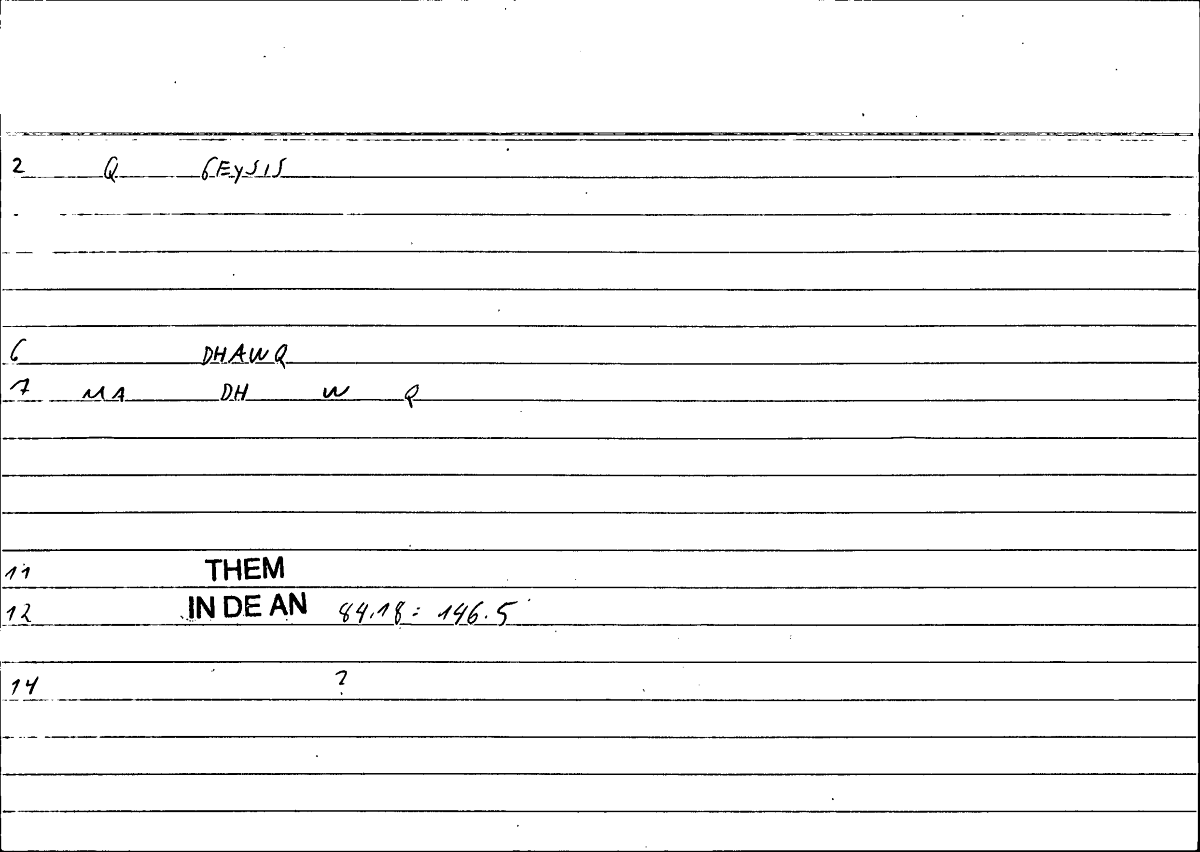 2 Q GEYSIS
6 DHAWQ
7 MA DH W Q
11 THEM
12 IN DE AN 84.18 = 146.5
14 ?